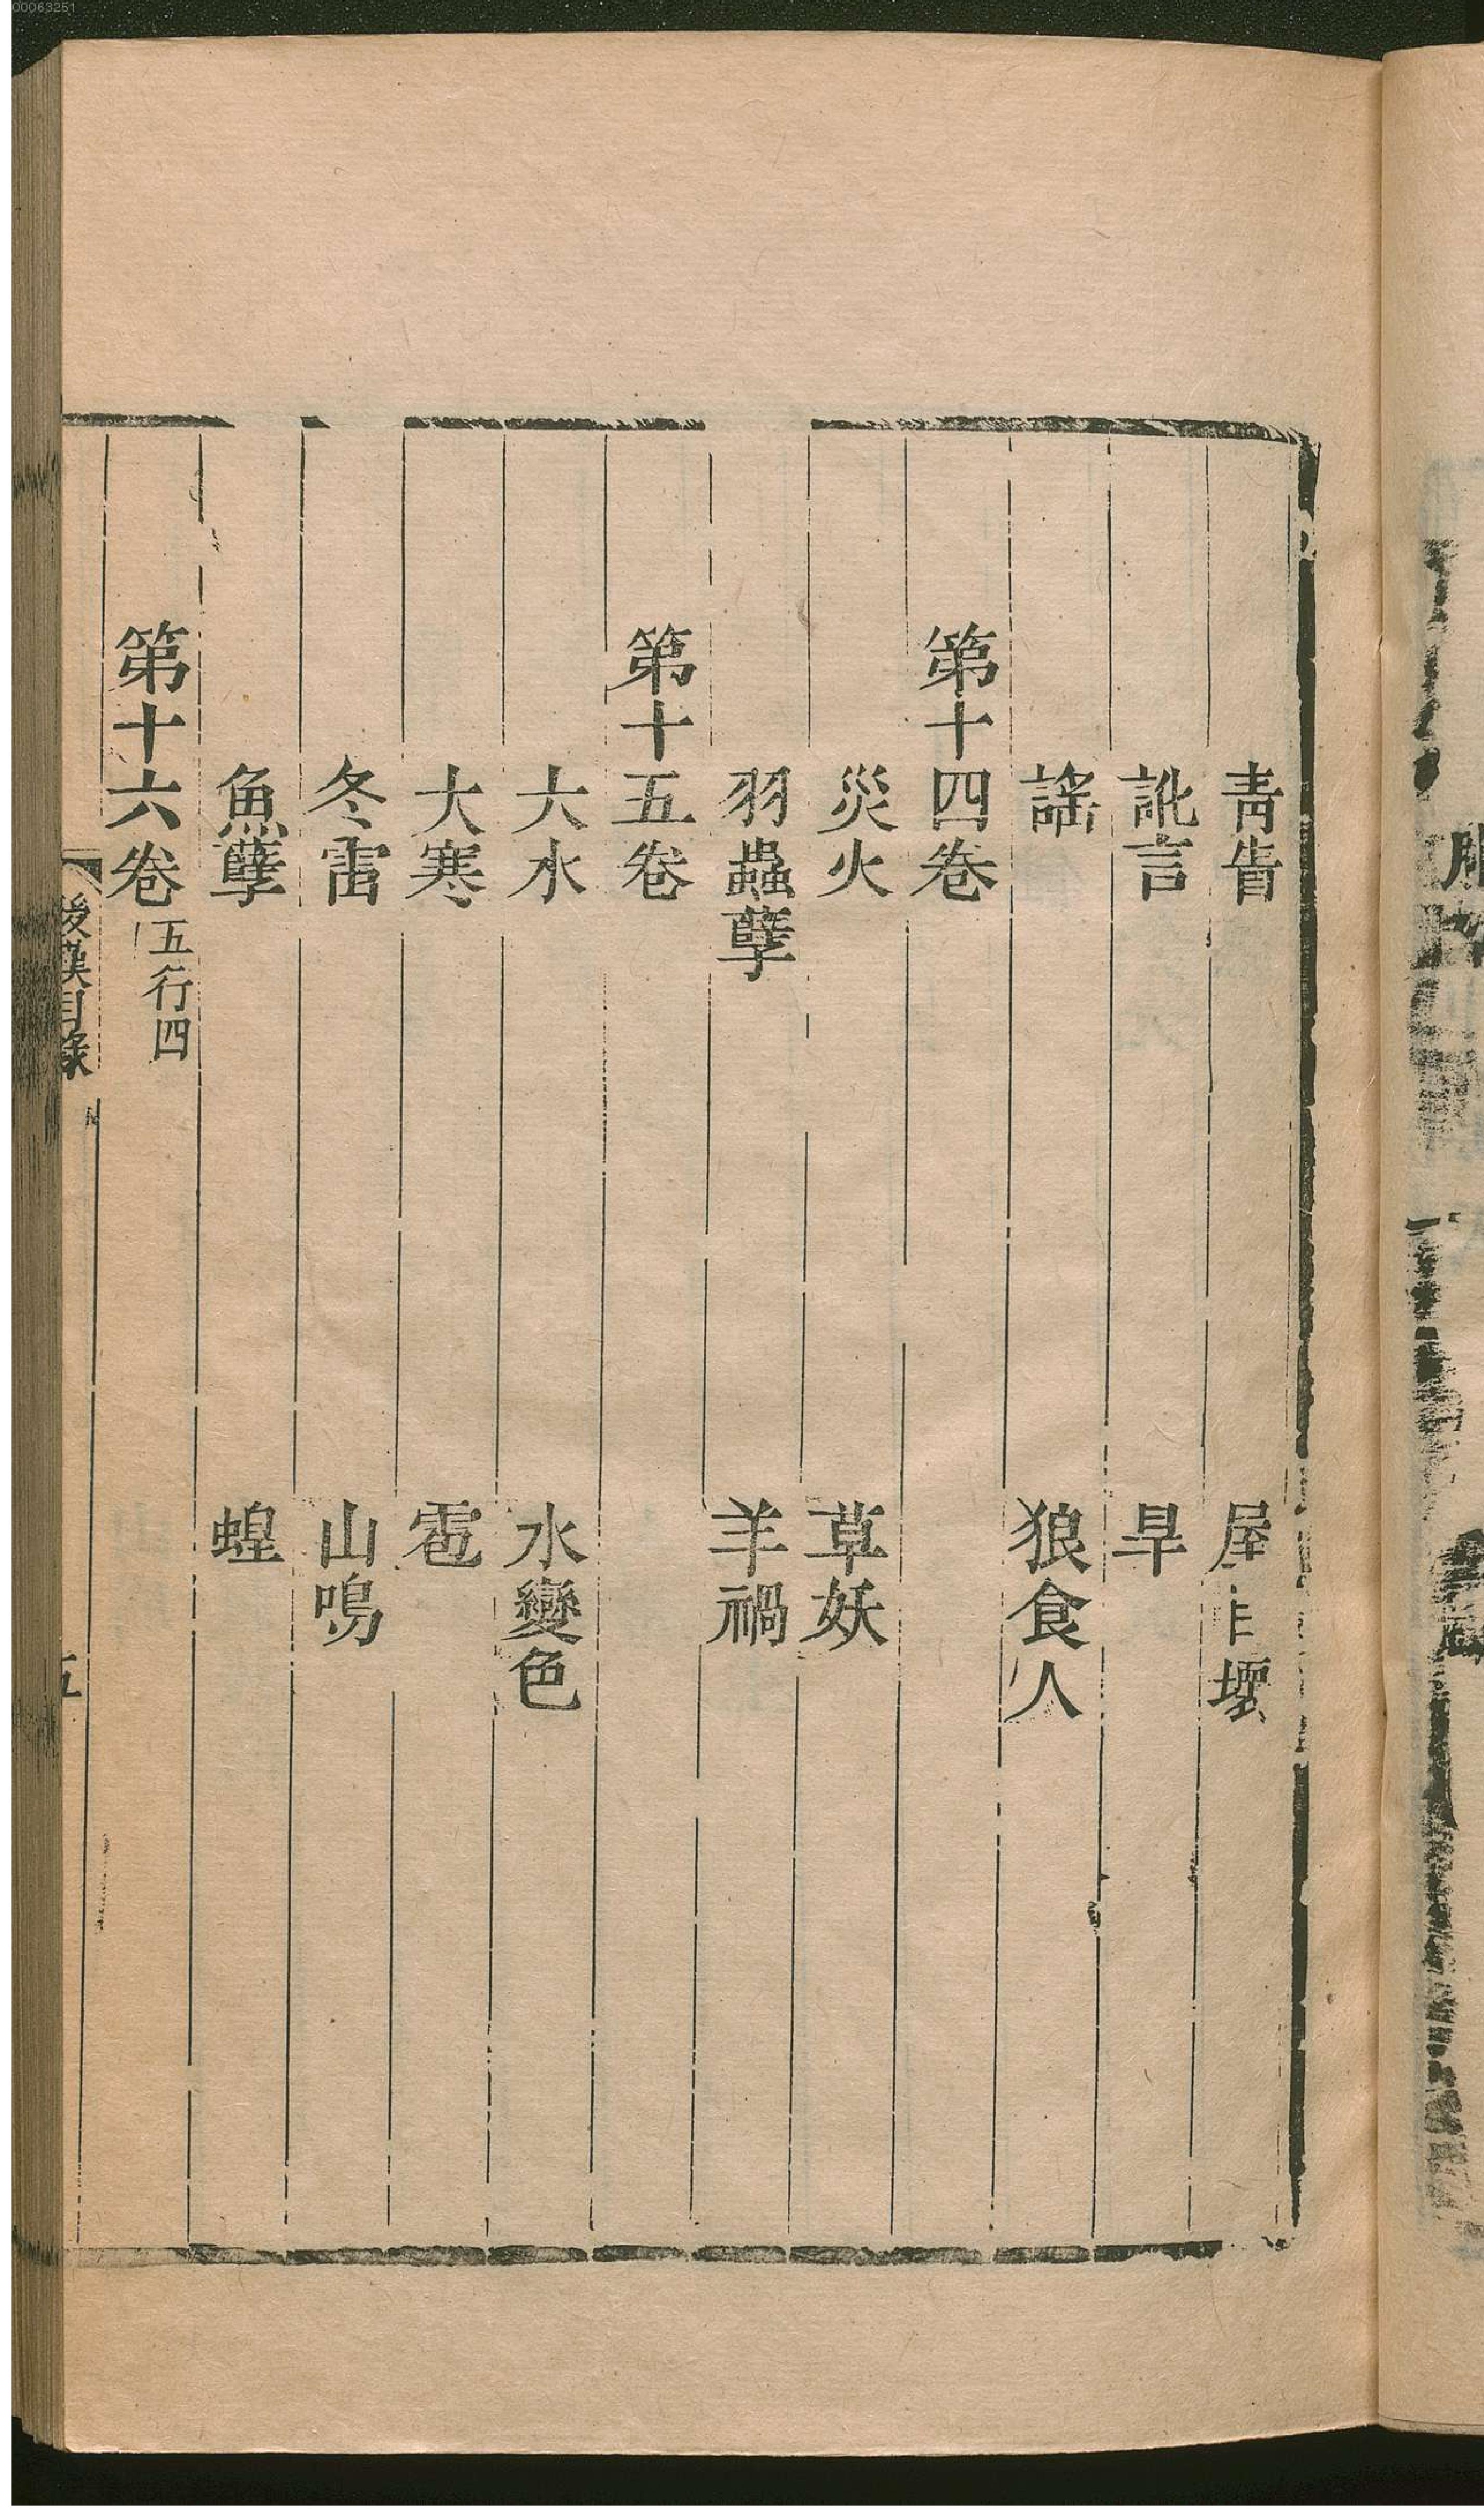 00063251
青眚　屋自壞
訛言　旱
謠　狼食人
第十四卷
災火　草妖
羽蟲孽　羊禍
第十五卷
大水　水變色
大寒　雹
冬雷　山鳴
魚孽　蝗
第十六卷　五行四
後漢目錄　五